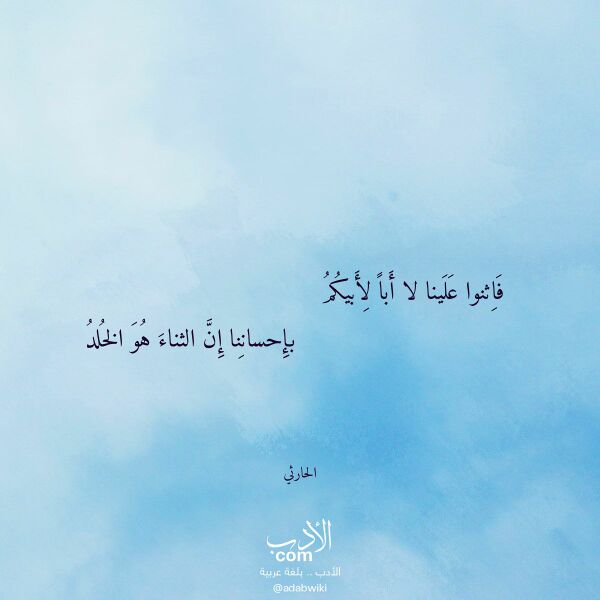 فَاِثنوا عَلَينا لا أَباً لِأَبيكُمُ
بِإِحسانِنا إِنَّ الثناءَ هُوَ الخُلدُ
الحارثي
الأدب
com
الأدب .. بلغة عربية
@adabwiki